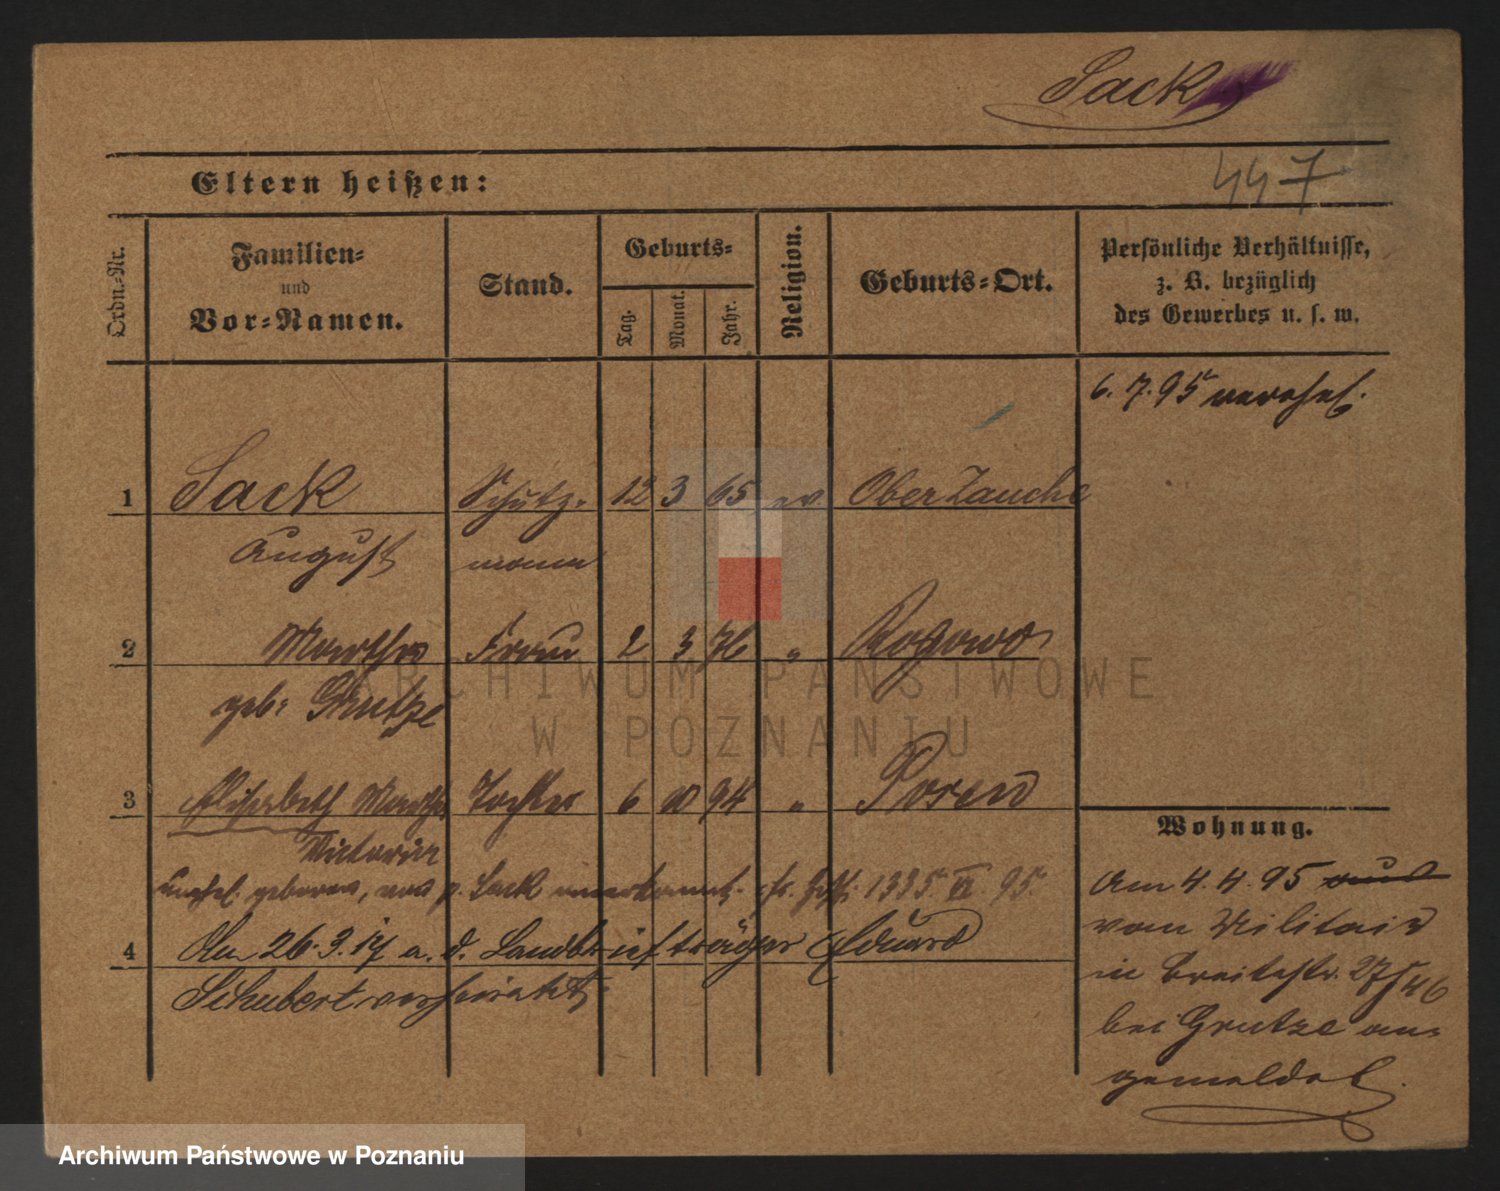 Sack
447
Eltern heißen:
Ordn.-Nr.
Familien-
und
Vor-Namen.
Stand.
Geburts-
Tag.
Monat.
Jahr.
Religion.
Geburts-Ort.
Persönliche Verhältnisse,
z. B. bezüglich
des Gewerbes u. s. w.
6. 7. 95 verehel.
1 Sack Schutz- 12 3 65 ev Ober Zauche
August mann
2 Martha Frau 2 3 76 " Rogowo
geb: Grutze
3 Elisabeth Martha Tochter 6 10 94 " Posen
Victoria
unehel. geboren, von p. Sack anerkannt. 1335. VI. 95.
4 Am 26.3.17 a. d. Landbriefträger Eduard
Schubert verheiratet
Wohnung.
Am 4. 4. 95
vom Militair
in Breitestr. 27
bei Grutze an-
gemeldet.
ARCHIWUM PAŃSTWOWE
W POZNANIU
Archiwum Państwowe w Poznaniu